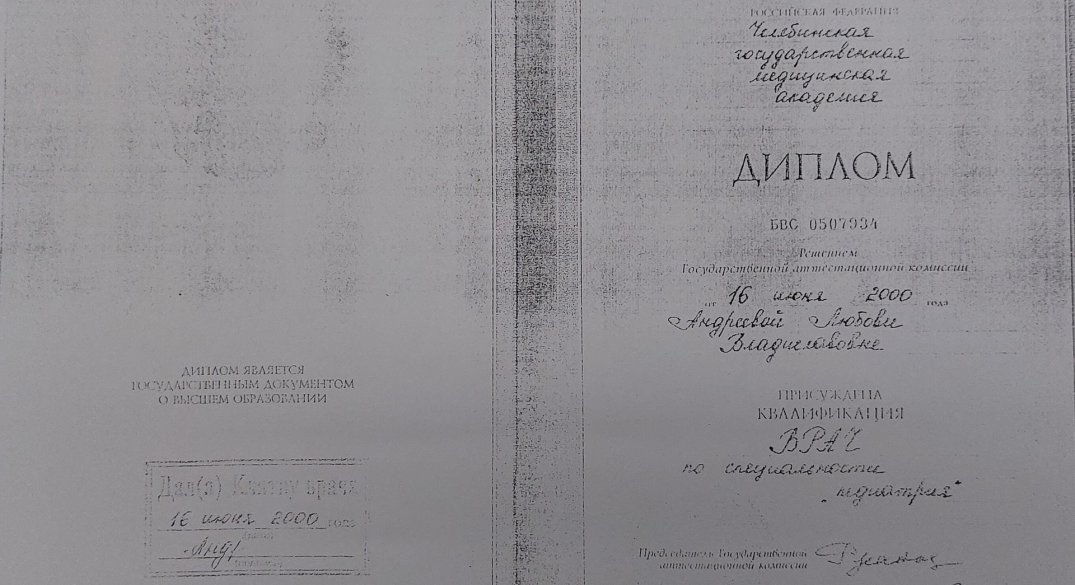 ДИПЛОМ ЯВЛЯЕТСЯ
ГОСУДАРСТВЕННЫМ ДОКУМЕНТОМ
О ВЫСШЕМ ОБРАЗОВАНИИ
Дал(а) Клятву врача
16 июня 2000 года
РОССИЙСКАЯ ФЕДЕРАЦИЯ
Челябинская
государственная
медицинская
академия
ДИПЛОМ
БВС 0507934
Решением
Государственной аттестационной комиссии
от 16 июня 2000 года
Андреевой Любови
Владиславовне
ПРИСУЖДЕНА
КВАЛИФИКАЦИЯ
ВРАЧ
по специальности
„педиатрия"
Председатель Государственной
аттестационной комиссии